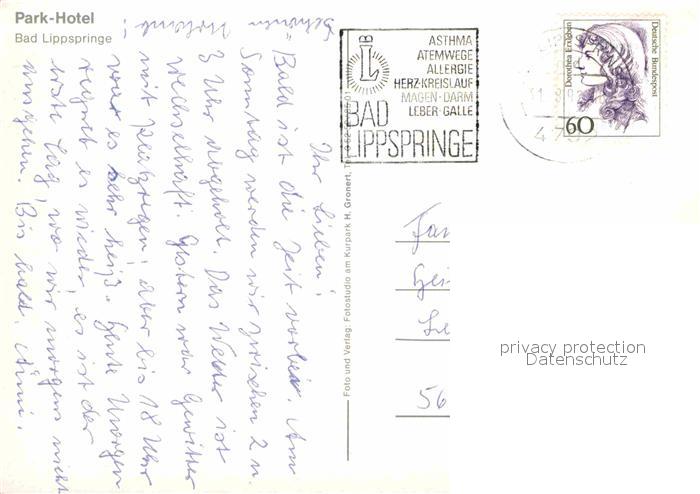 Park-Hotel
Bad Lippspringe
Ihr Lieben!
Bald ist die Zeit vorbei. Am
Sonntag werden wir zwischen 2 u.
3 Uhr abgeholt. Das Wetter ist
wechselhaft. Gestern war Gewitter
mit Platzregen, aber bis 18 Uhr
war es sehr heiß. Heute Morgen
regnet es wieder, es ist der
erste Tag, wo wir morgens nicht
ausgehen. Bis bald.
Schönen
Foto und Verlag: Fotostudio am Kurpark H. Gronert, 
BAD
LIPPSPRINGE
ASTHMA
ATEMWEGE
ALLERGIE
HERZ·KREISLAUF
MAGEN·DARM
LEBER·GALLE
Dorothea Erxleben
Deutsche Bundespost
60
Fam
Hei
56
privacy protection
Datenschutz